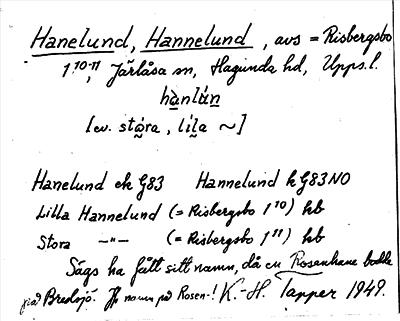 Hanelund, Hannelund, avs = Risbergsbo
1¹⁰⁻¹¹, Järlåsa sn, Hagunda hd, Upps. l.
hànlún
[ev. stóra, líla ~]
Hanelund ek G83 Hannelund k G83NO
Lilla Hannelund (= Risbergsbo 1¹⁰) hb
Stora -"- (= Risbergsbo 1¹¹) hb
Sägs ha fått sitt namn, då en Rosenhane bodde
på Bredsjö. Jfr namn på Rosen-! K.-H. Tapper 1949.